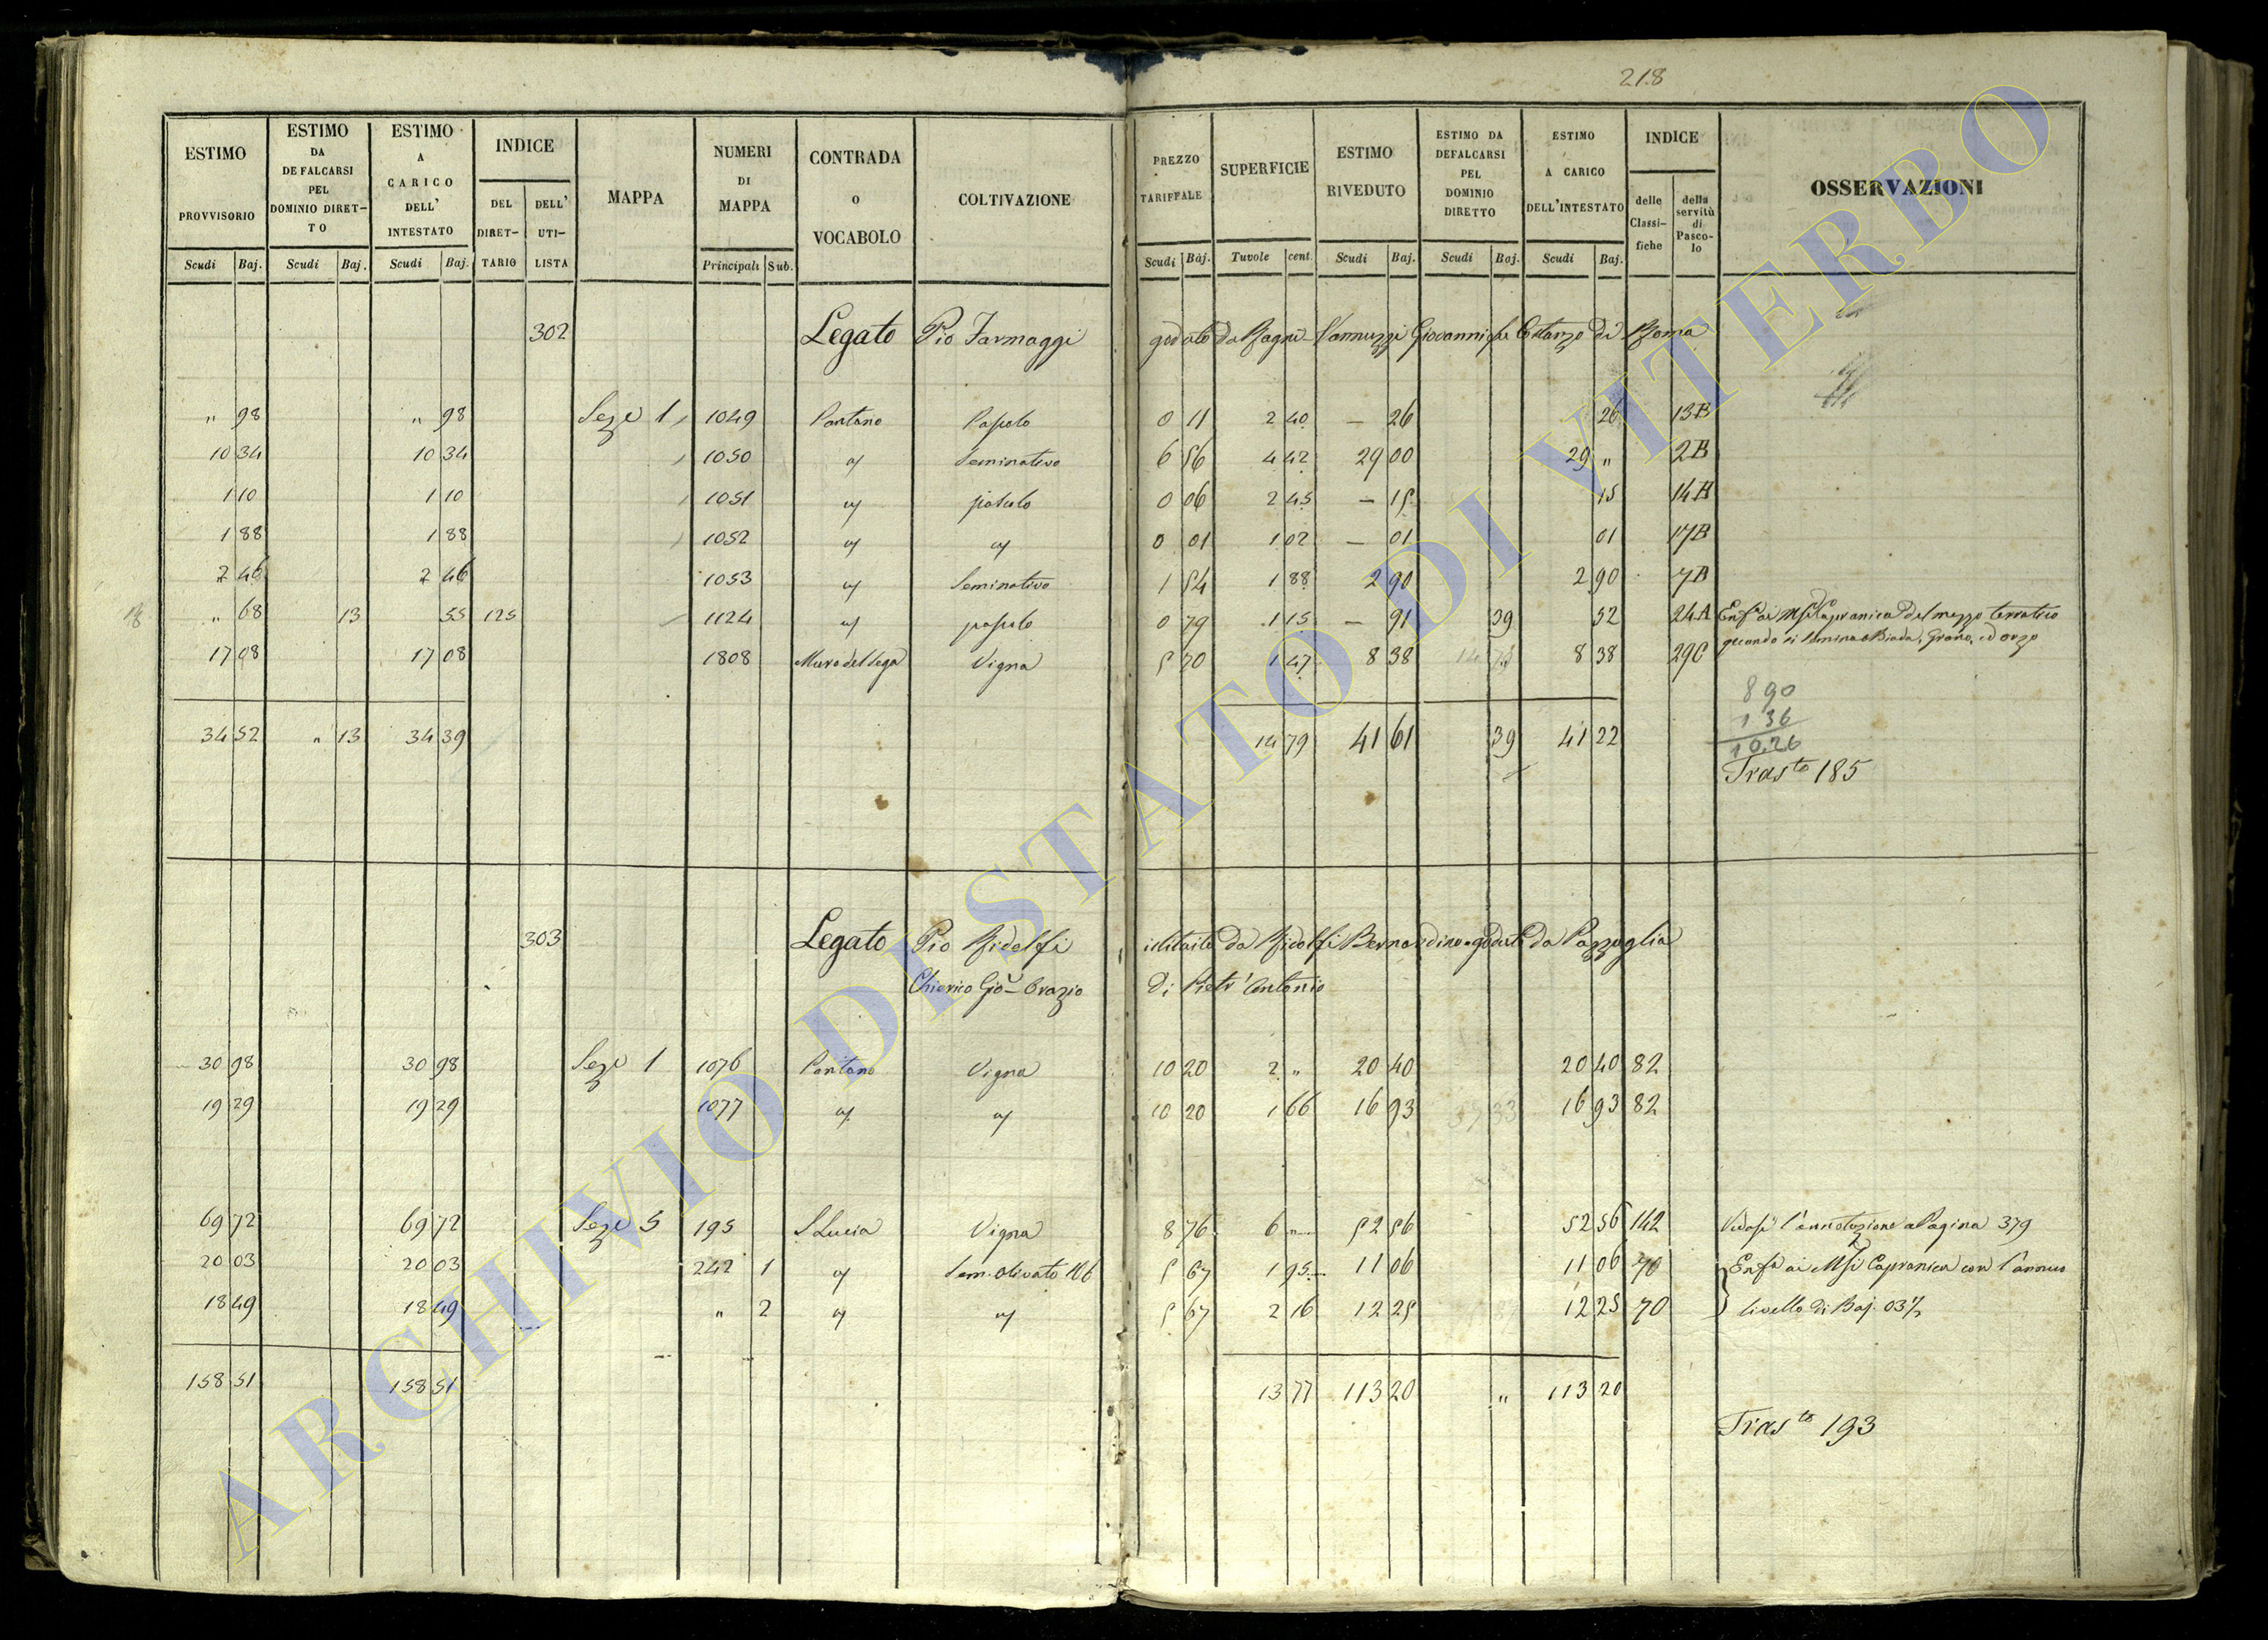 218
ESTIMO PROVVISORIO Scudi Baj.
ESTIMO DA DEFALCARSI PEL DOMINIO DIRETTO Scudi Baj.
ESTIMO A CARICO DELL' INTESTATO Scudi Baj.
INDICE DEL DIRETTARIO DELL' UTILISTA
MAPPA
NUMERI DI MAPPA Principali Sub.
CONTRADA o VOCABOLO
COLTIVAZIONE
PREZZO TARIFFALE Scudi Baj.
SUPERFICIE Tavole cent.
ESTIMO RIVEDUTO Scudi Baj.
ESTIMO DA DEFALCARSI PEL DOMINIO DIRETTO Scudi Baj.
ESTIMO A CARICO DELL'INTESTATO Scudi Baj.
INDICE delle Classifiche della servitù di Pascolo
OSSERVAZIONI
302 Legato Pio Farmaggi goduto da Vannuzzi Giovanni di Roma
" 98 " 98 Seze 1 1049 Pantano Pascolo 0 11 2 40 — 26 26 13B
10 34 10 34 1050 " Seminativo 6 56 4 42 29 00 29 " 2B
1 10 1 10 1051 " pascolo 0 06 2 45 — 15 15 14B
1 88 1 88 1052 " " 0 01 1 02 — 01 01 17B
2 46 2 46 1053 " Seminativo 1 54 1 88 2 90 2 90 7B
" 68 13 55 125 1124 " pascolo 0 79 1 15 — 91 39 52 24A Enfa ai Capranica del mezzo terratico
17 08 17 08 1808 Vigna 5 70 1 47 8 38 8 38 29C quando si semina Biada, Grano, ed orzo
8 90
1 36
10.26
34 52 " 13 34 39 14 79 41 61 39 41 22
Trasto 185
303 Legato Pio Ridolfi istituito da Ridolfi Bernardino e goduto da Pazzaglia
Chierico Gio Orazio di Pietr'Antonio
30 98 30 98 Seze 1 1076 Pantano Vigna 10 20 2 " 20 40 20 40 82
19 29 19 29 1077 " " 10 20 1 66 16 93 16 93 82
69 72 69 72 Seze 5 195 S Lucia Vigna 8 76 6 " 52 56 52 56 142 Vedasi l'annotazione a Pagina 379
20 03 20 03 242 1 " Sem. olivato 5 67 1 95 11 06 11 06 70 Enfa ai Capranica con l'annuo
18 49 18 49 " 2 " " 5 67 2 16 12 25 12 25 70 livello di Baj. 03
158 51 158 51 13 77 113 20 " 113 20
Trasto 193
ARCHIVIO DI STATO DI VITERBO